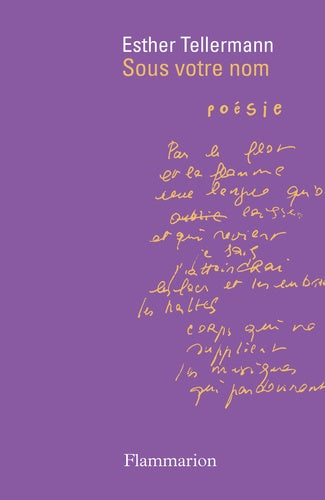 Esther Tellermann
Sous votre nom
poésie
Par le flot
et la flamme
une langue qu'o
oublie laisse
et qui revient
je sais
j'attendrai
et les
les haltes
corps qui ne
supplient
les musiques
qui
Flammarion